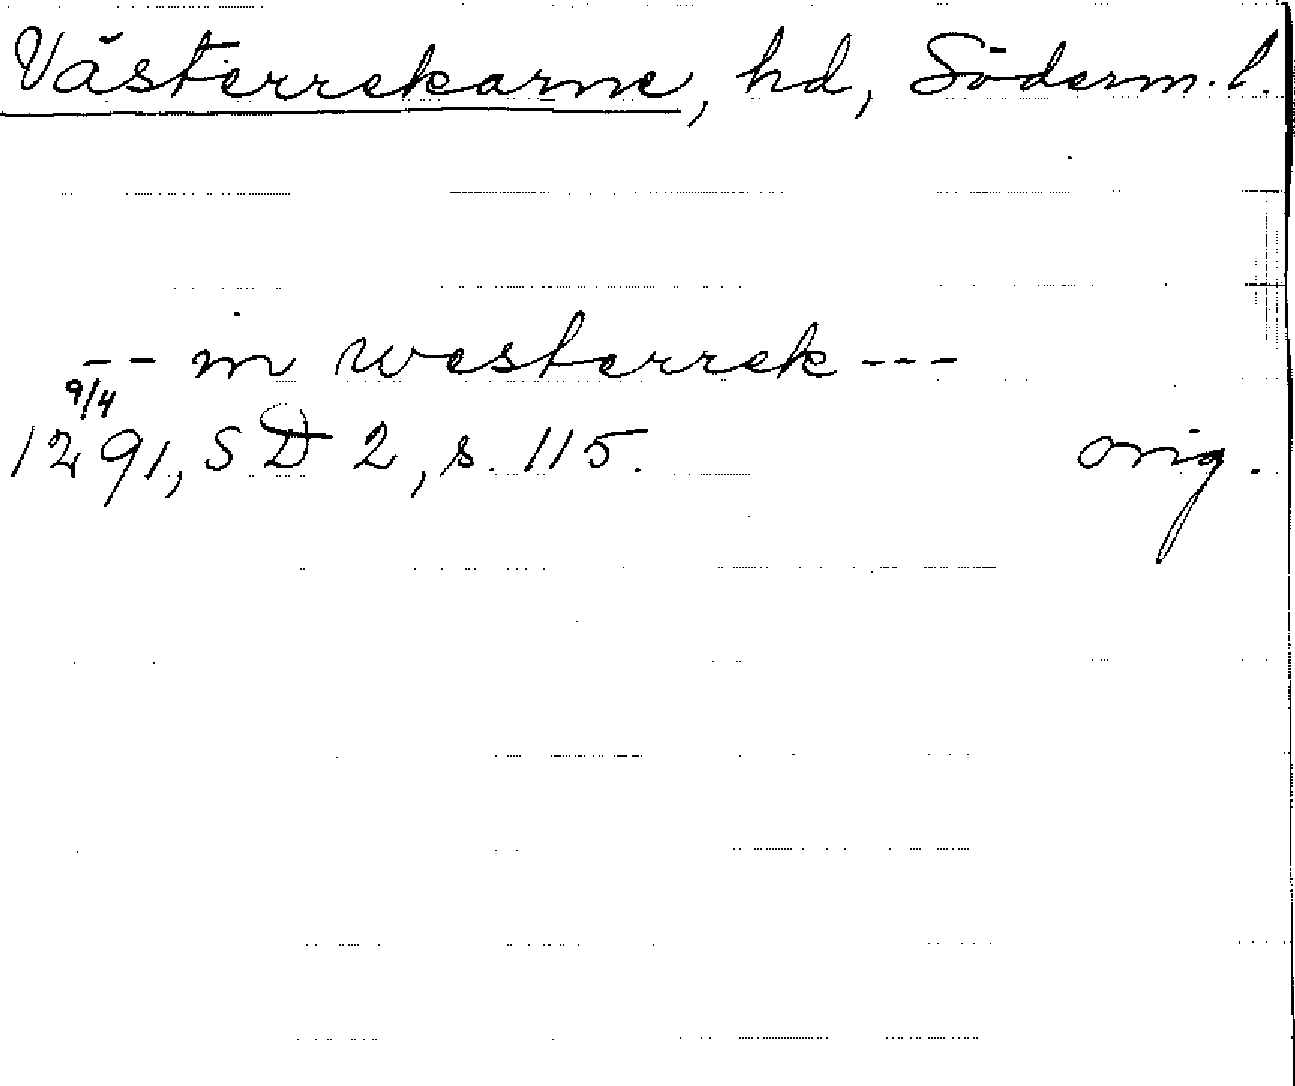 Västerrekarne, hd, Söderm. l.
-- in westerrek ---
9/4
1291, SD 2, s. 115. orig.